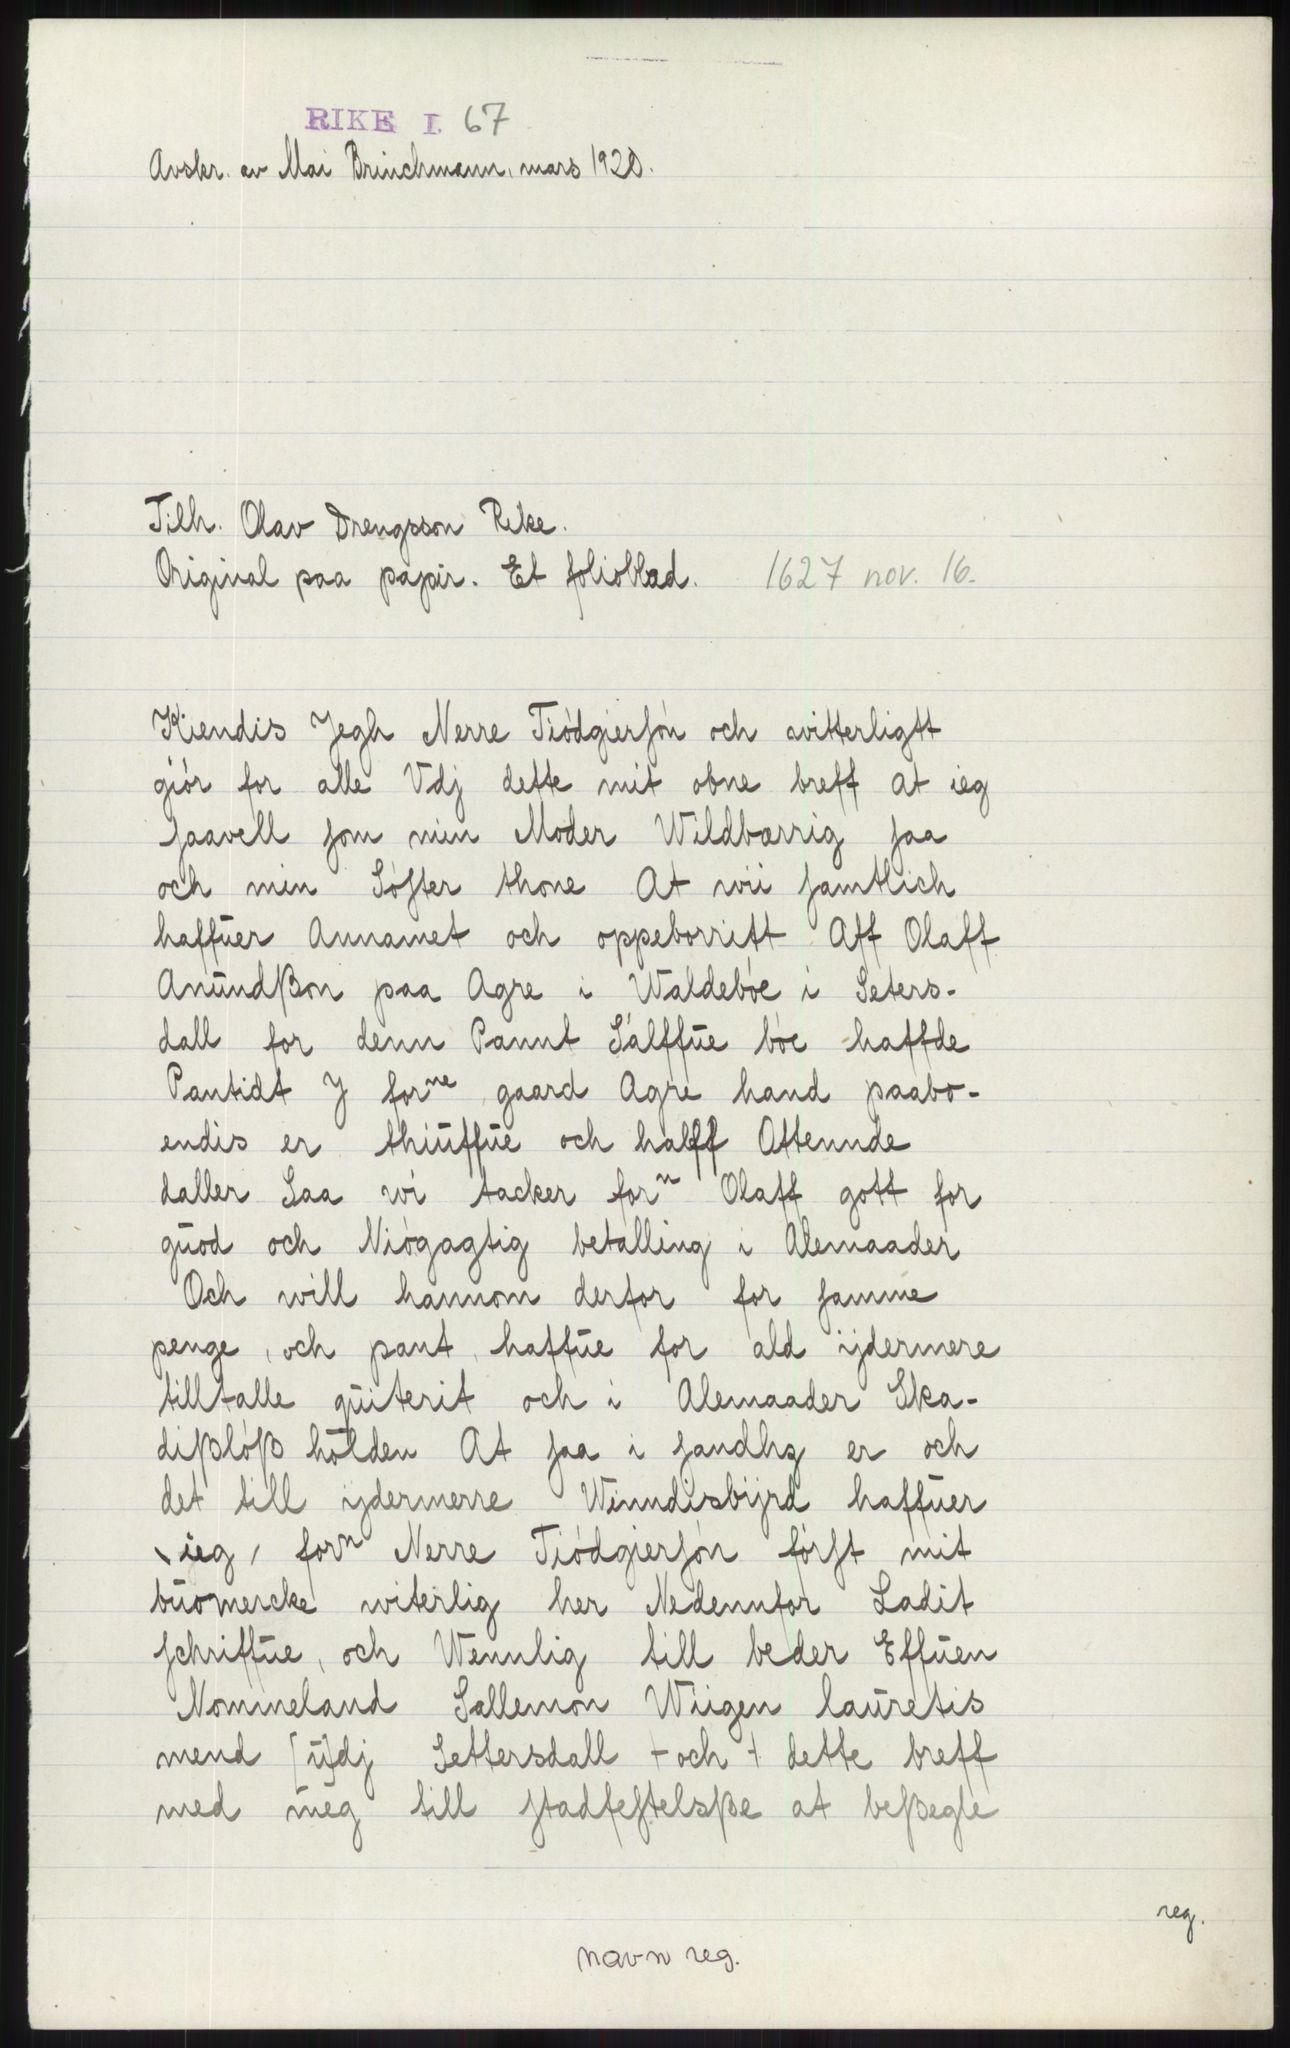 RIKE I. 67
Avskr. av Mai Brinchmann, mars 1920.
Tilh. Olav Drengsson Rike.
Original paa papir. Et folioblad. 1627 nov. 16.
Kiendis Jegh Nerre Tiódgierſón och witterligtt
giór for alle Vdj dette mit obne breff at ieg
ſaavell ſom min Moder Wildbærrig ſaa
och min Sóſter thone At wii ſamtlich
haffŭer Annamet och oppeborritt Aff Olaff
Anŭndßon paa Agre i Waldebóe i Seters-
dall for denn Pannt Sálffŭe bóe haffde
Pantidt J forne gaard Agre hand paabo-
endis er thiŭffŭe och halff Attennde
daller Saa wi tacker forn Olaff gott for
gŭod och Niógagtig betalling i Alemaader
Och will hannom derfor for ſamme
penge, och pant, haffŭe for ald ijdermere
tilltalle qŭiterit och i Alemaader Ska-
dißlóß hólden At ſaa i ſandhz er och
det till ijdermerre Winndisbijrd haffŭer
\ ieg / forn Nerre Tiódgierſón fórſt mit
bŭomercke witerlig her Nedennfor Ladit
ſchriffŭe, och Wennlig till beder Effŭen
Nommeland Sallemon Wiigen laŭretis
mend [ŭ]dj Settersdall + och + dette breff
med meg till ſtadfeſtelsße at beßegle
reg.
navn reg.